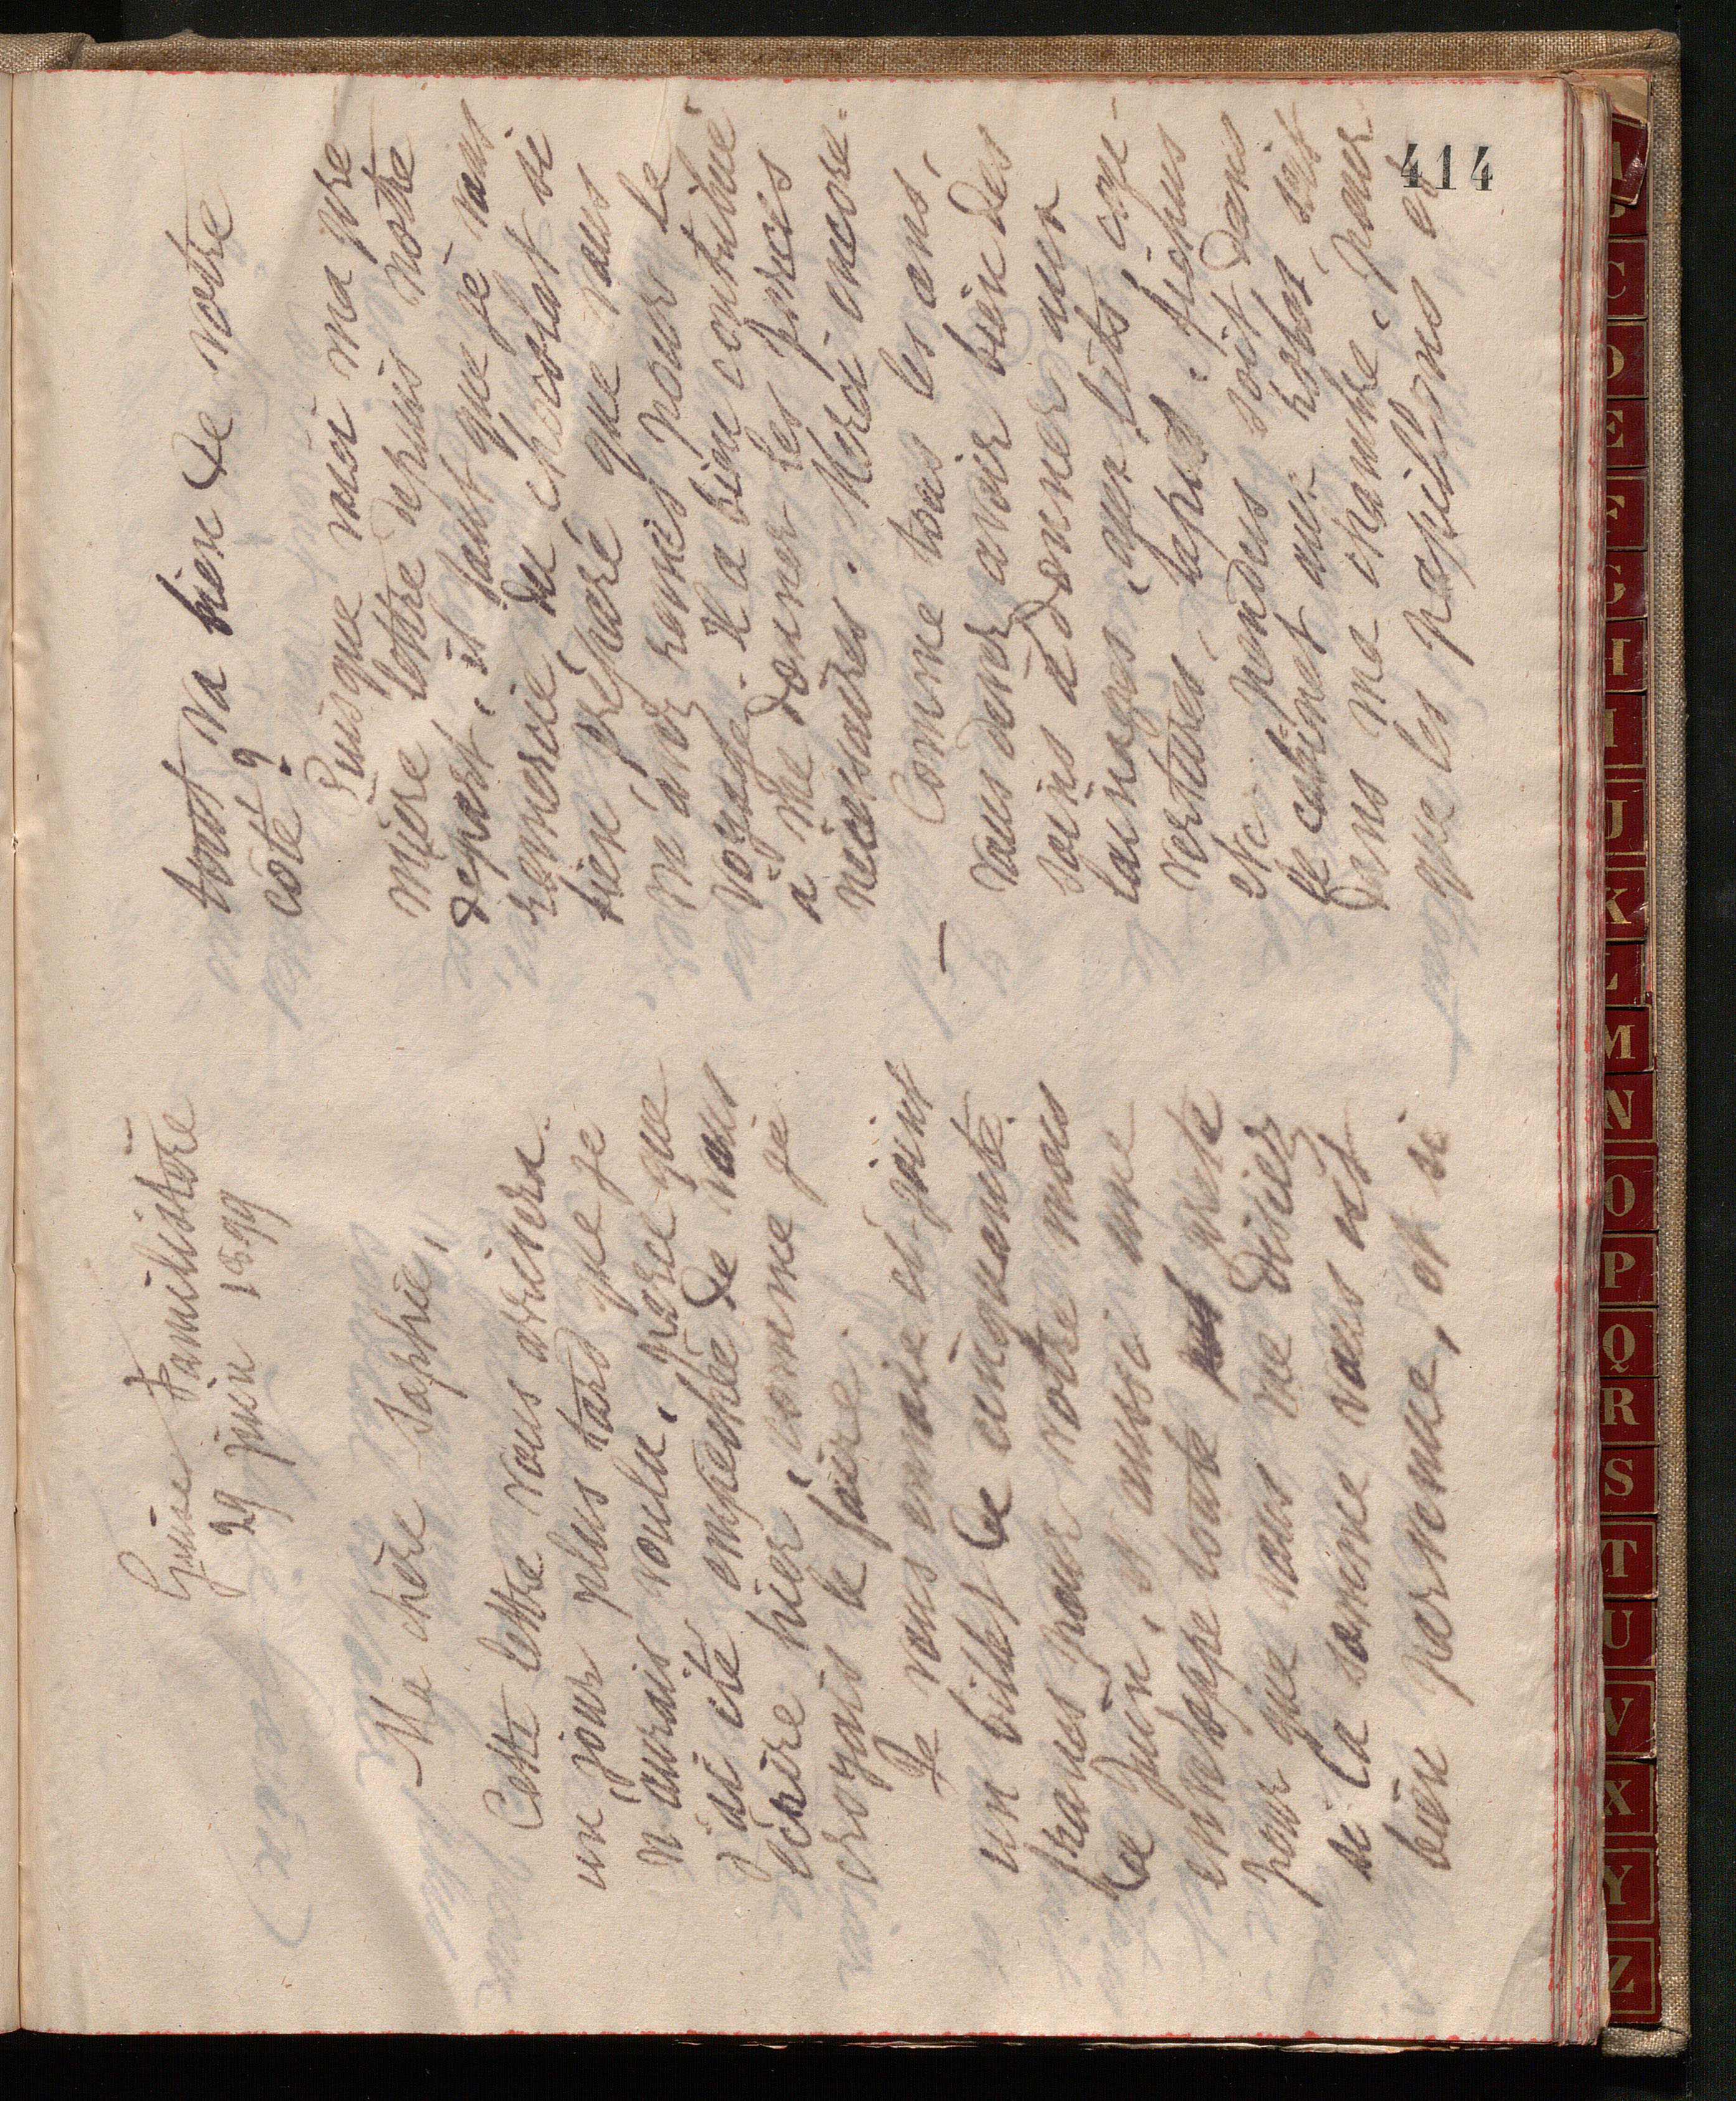 Guise Familistère
29 juin 1899
Ma chère Sophie,
Cette lettre vous arrivera
un jour plus tard que je
n'aurais voulu, parce que
j'ai été empêchée de vous
écrire hier, comme je
croyais le faire.
Je vous envoie ci-joint
un billet de cinquante
francs pour votre mois
de Juin, et aussi une
enveloppe toute prête
pour que vous me disiez
si la somme vous est
bien parvenue, et si
tout va bien de votre
côté ?
Puisque voici ma pre
mière lettre depuis notre
départ, il faut que je vous
remercie du chocolat si
bien préparé que vous
m'avez remis pour le
voyage. Il a bien contribué
à me donner les forces
nécessaires. Merci encore.
— Comme tous les ans,
vous devez avoir bien des
soins à donner aux
lainages, aux lits, cou-
vertures, tapis, fichus
etc. pendus soit dans
le cabinet aux robes, soit
dans ma chambre, pour
que les papillons et
414
A
C
D
E
F
G
H
I
J
K
L
M
N
O
P
Q
R
S
T
U
V
X
Y
Z